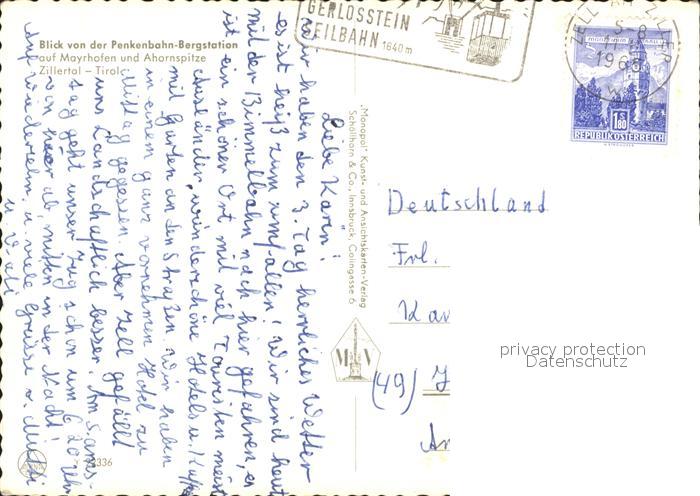 Blick von der Penkenbahn-Bergstation
auf Mayrhofen und Ahornspitze
Zillertal – Tirol
GERLOSSTEIN
SEILBAHN 1640 m
ZELL AM ZILLER
1965
1.80
REPUBLIK ÖSTERREICH
Liebe Karin!
wir haben den 3. Tag herrliches Wetter
es ist heiß zum umfallen! Wir sind heute
mit der Bimmelbahn nach hier gefahren, es
ist ein schöner Ort mit viel Touristen meist
Ausländer, wunderschöne Hotels u.
mit Garten an den Straßen. Wir haben
in einem ganz vornehmen Hotel zu
Mittag gegessen. Aber Zell gefällt
uns landschaftlich besser. Am Sams-
tag geht unser Zug schon um 6.20 Uhr
von hier ab, mitten in der Nacht!
Auf wiedersehn. u. viele Grüsse v. Mutti
u. Vati
"Monopol" Kunst- und Ansichtskarten-Verlag
Schöllhorn & Co., Innsbruck, Colingasse 6
M V
336
Deutschland
Frl.
Kar
(49)
An
privacy protection
Datenschutz